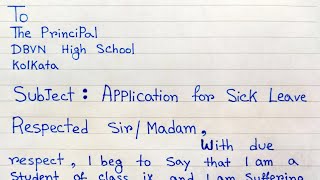 To
The PrinciPal
DBVN High School
Kolkata
Subject : Application for Sick Leave
Respected Sir/Madam,
With due
respect, I beg to say that I am a
Student of class ix and I am Suffering